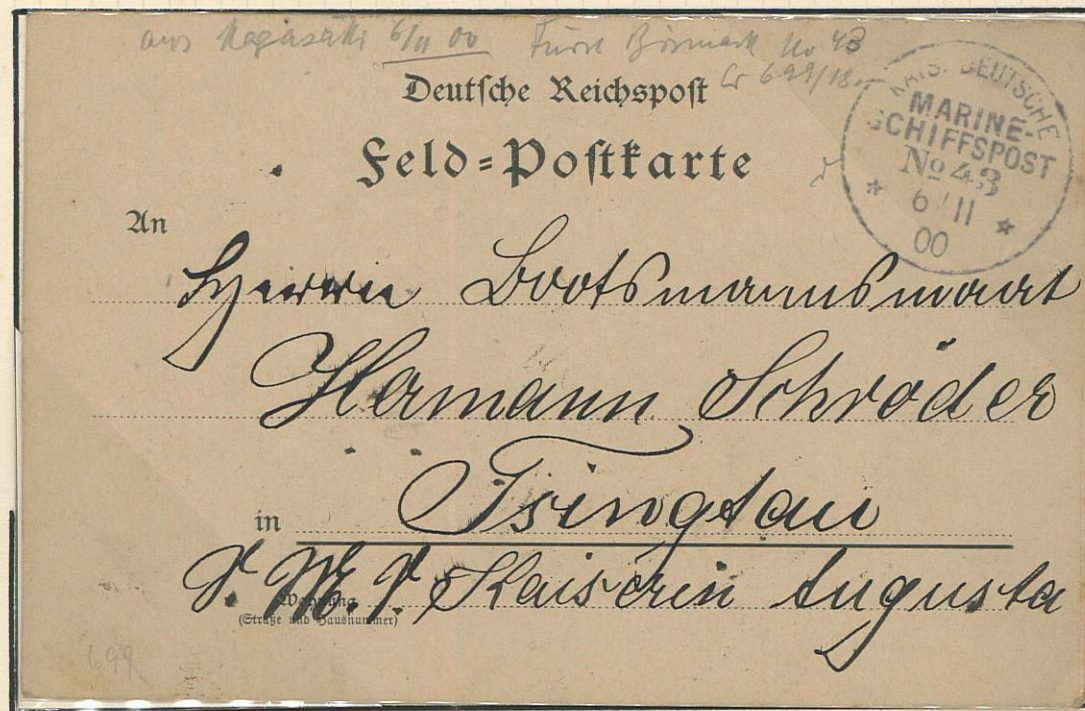 aus Nagasaki 6/11 00 Fürst Bismark No 43
Cr 699/18.-
Deutsche Reichspost
Feld-Postkarte
KAIS. DEUTSCHE
MARINE-
SCHIFFSPOST
No 43
* 6/11 *
00
An
Herrn Bootsmannsmaat
Hermann Schröder
in Tsingtau
S. M. S. Kaiserin Augusta
Wohnung
(Straße und Hausnummer)
699